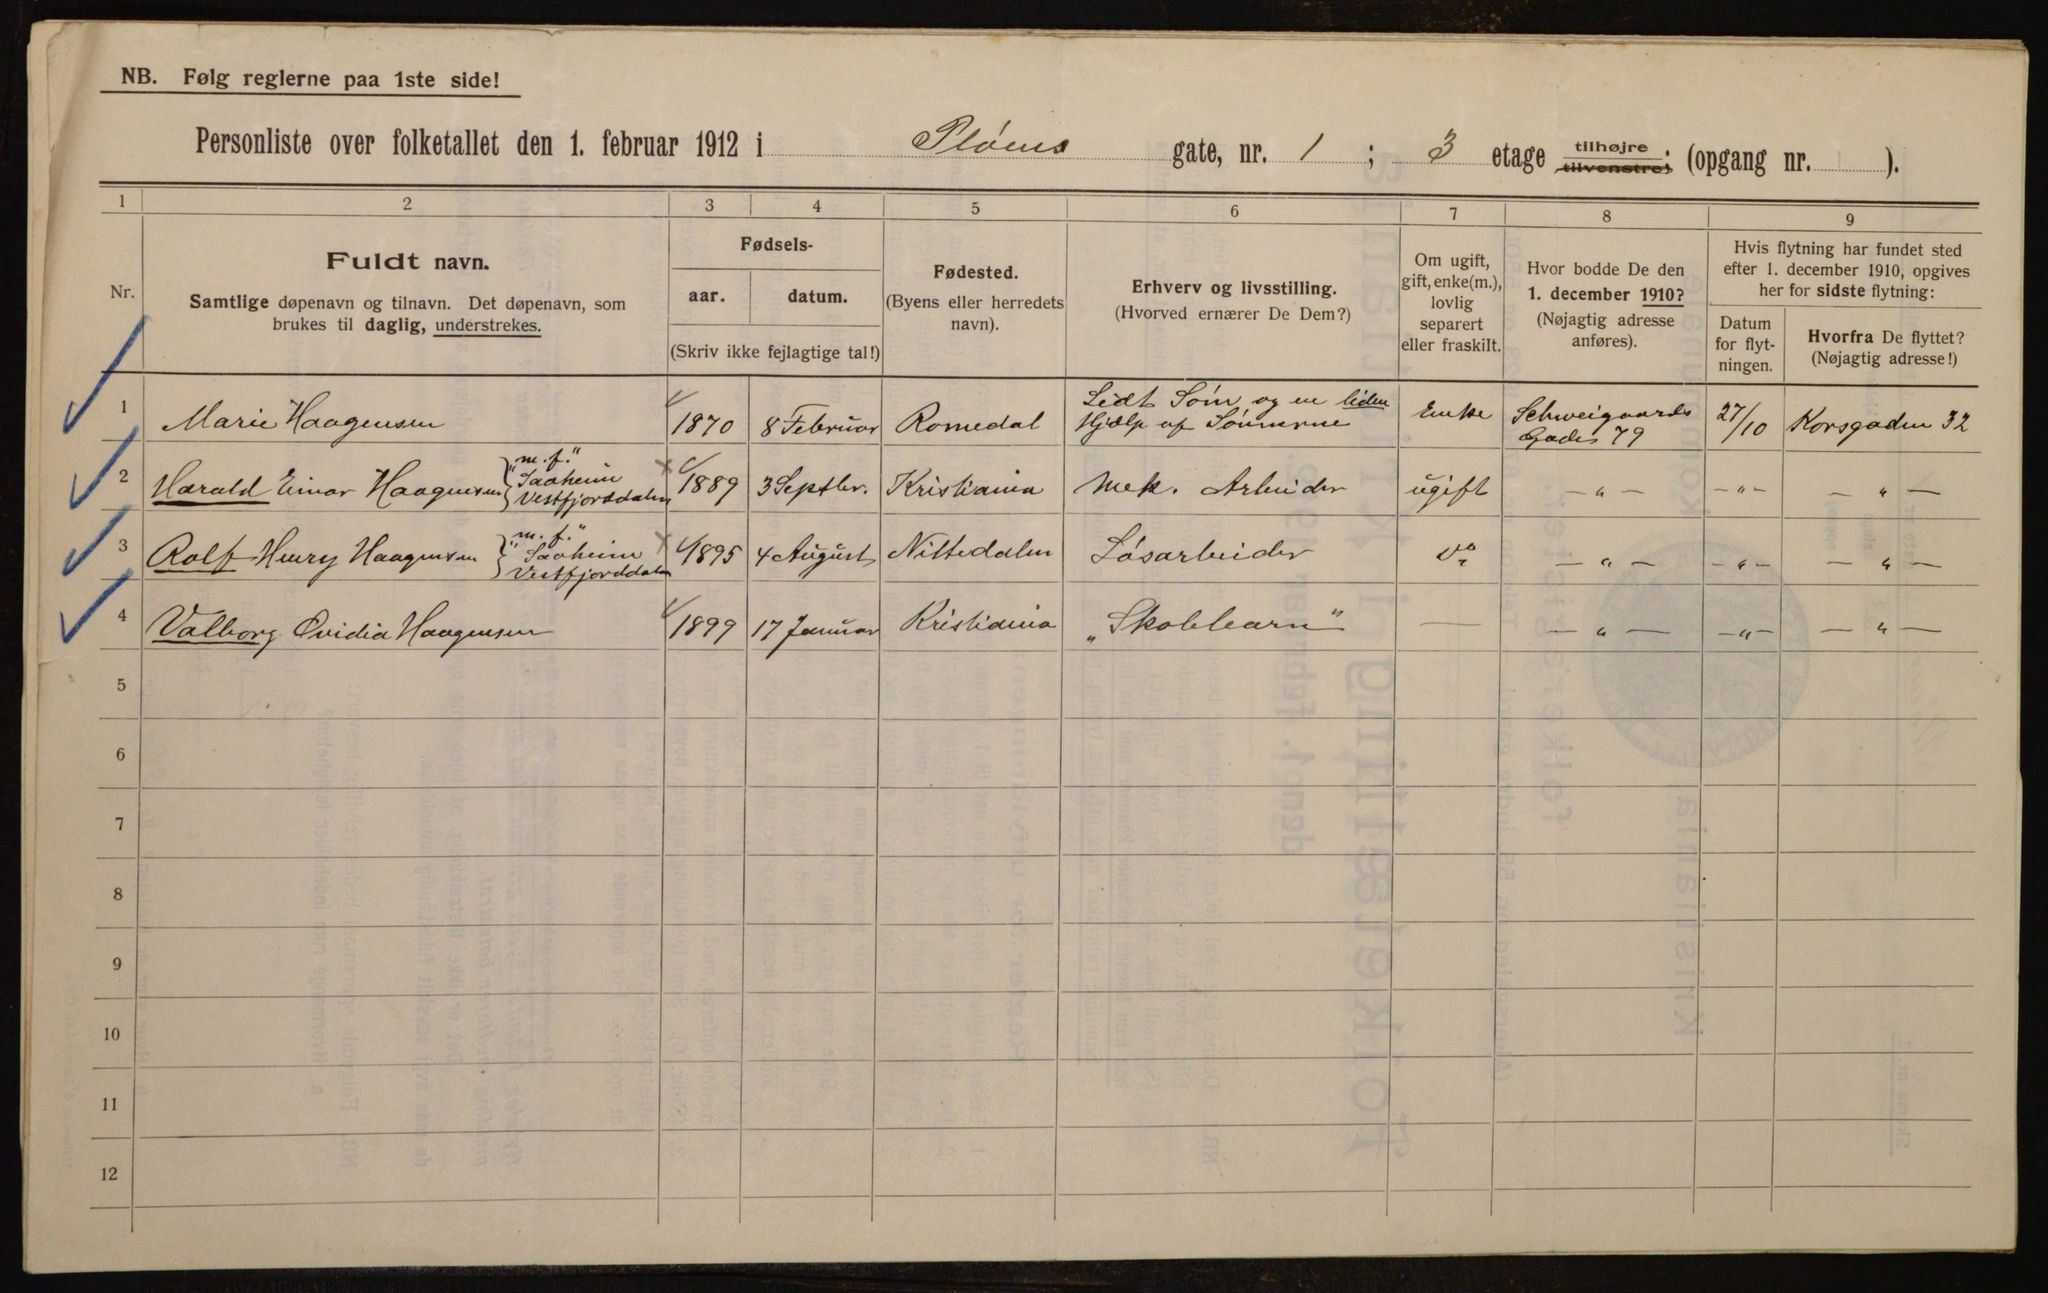 NB. Følg reglerne paa 1ste side!
Personliste over folketallet den 1. februar 1912 i Pløens gate, nr. 1 ; 3 etage tilhøjre tilvenstre; (opgang nr. ).
1 2 3 4 5 6 7 8 9
Nr.
Fuldt navn.
Samtlige døpenavn og tilnavn. Det døpenavn, som
brukes til daglig, understrekes.
Fødsels-
aar. datum.
(Skriv ikke fejlagtige tal!)
Fødested.
(Byens eller herredets
navn).
Erhverv og livsstilling.
(Hvorved ernærer De Dem?)
Om ugift,
gift, enke(m.),
lovlig
separert
eller fraskilt.
Hvor bodde De den
1. december 1910?
(Nøjagtig adresse
anføres).
Hvis flytning har fundet sted
efter 1. december 1910, opgives
her for sidste flytning:
Datum
for flyt-
ningen.
Hvorfra De flyttet?
(Nøjagtig adresse!)
1 Marie Haagensen 1870 8 Februar Romedal Lidt Søm og en liden
Hjælp af Sønnerne Enke Schweigaards
Gades 79 27/10 Korsgaden 32
2 Harald Einar Haagensen "m. f."
"Saaheim
Vestfjorddalen 1889 3 Septbr. Kristiania Mek. Arbeider ugift — " — — " — — " —
3 Rolf Henry Haagensen "m. f."
"Saaheim
Vestfjorddalen 1895 4 August Nittedalen Løsarbeider do — " — — " — — " —
4 Valborg Ovidia Haagensen 1899 17 Januar Kristiania „Skolebarn" — — " — — " — — " —
5
6
7
8
9
10
11
12